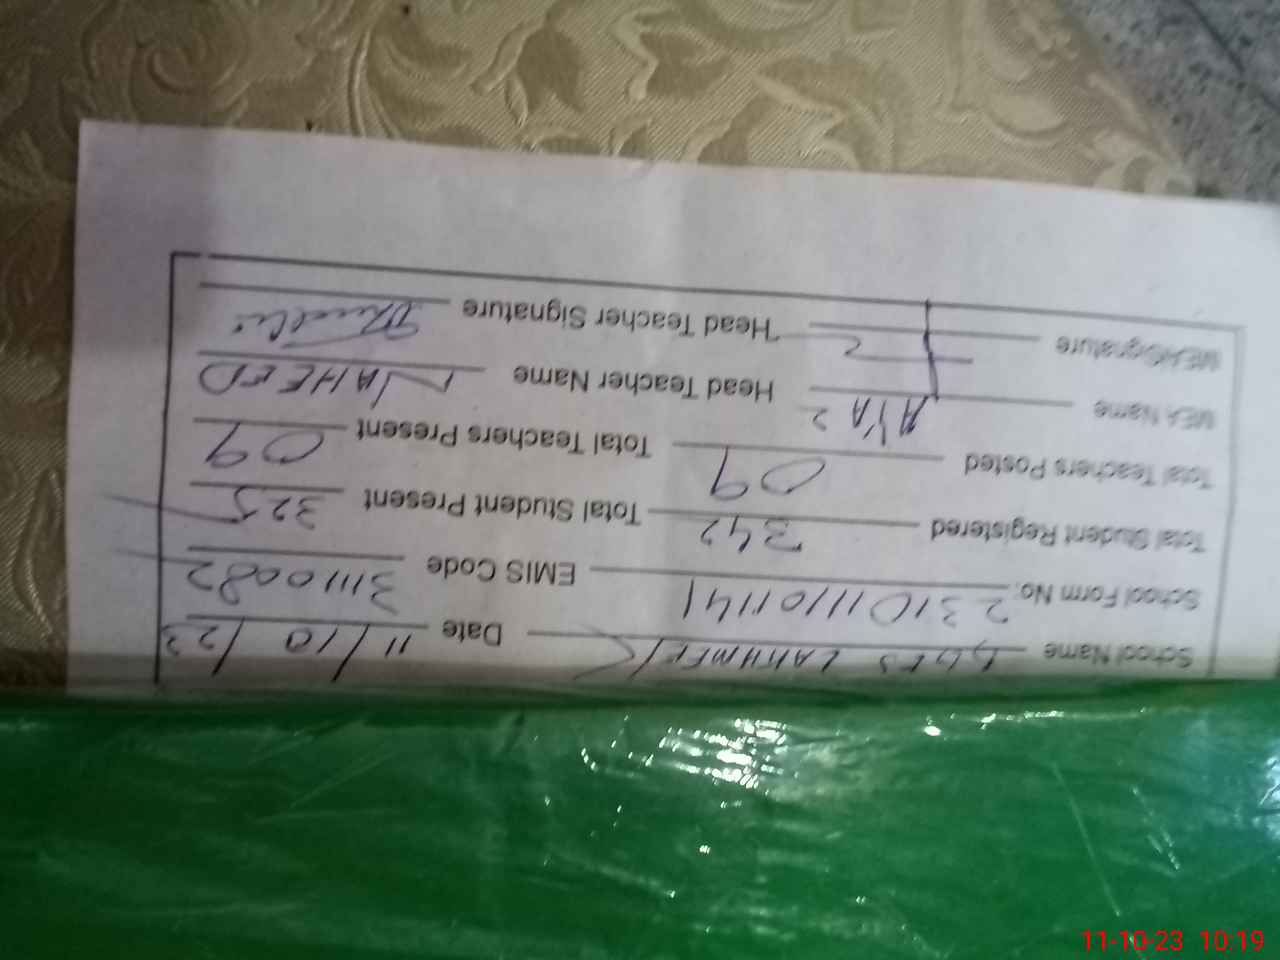 School Name GGES LAKHMER Date 11/10/23
School Form No. 231011101141 EMIS Code 31110082
Total Student Registered 342 Total Student Present 325
Total Teachers Posted 09 Total Teachers Present 09
MEA Name Head Teacher Name NAHEED
MEA Signature Head Teacher Signature
11-10-23 10:19